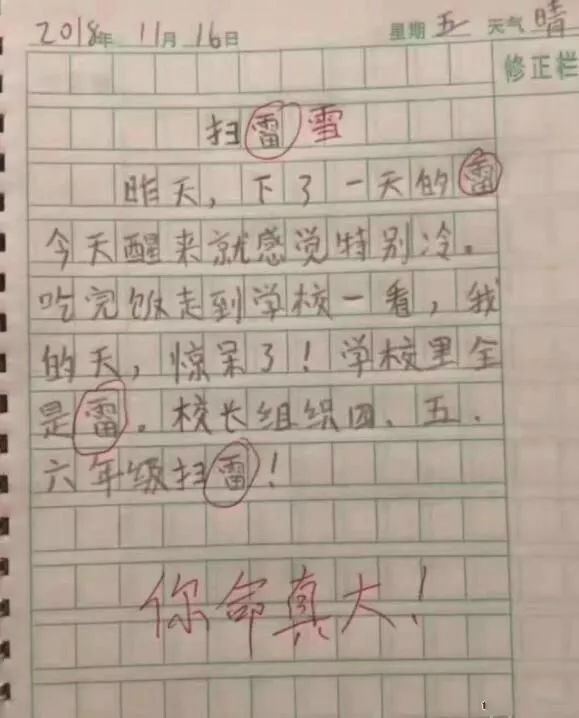 2018年 11月 16日 星期 五 天气 晴
修正栏
扫雷雪
昨天，下了一天的雷
今天醒来就感觉特别冷。
吃完饭走到学校一看，我
的天，惊呆了！学校里全
是雷。校长组织四、五、
六年级扫雷！
你命真大！
t